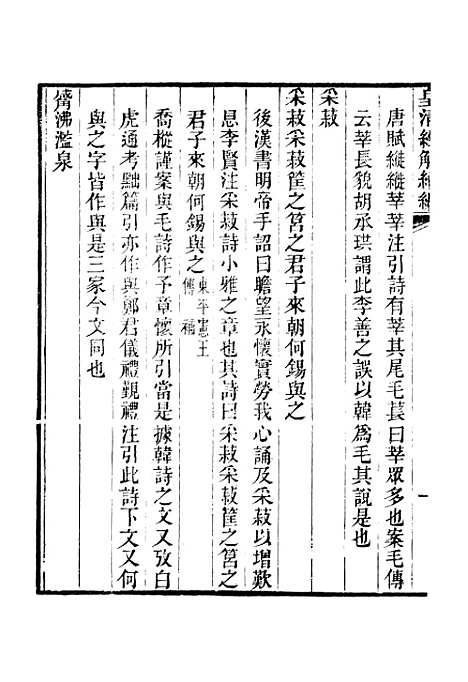 皇清經解續編
唐賦縰縰莘莘注引詩有莘其尾毛萇曰莘眾多也案毛傳
云莘長貌胡承珙謂此李善之誤以韓爲毛其說是也
采菽
采菽采菽筐之筥之君子來朝何錫與之
後漢書明帝手詔曰瞻望永懷實勞我心誦及采菽以增歎
息李賢注采菽詩小雅之章也其詩曰采菽采菽筐之筥之
君子來朝何錫與之東平憲王傳
喬樅謹案與毛詩作予章懷所引當是據韓詩之文又攷白
虎通考黜篇引亦作與鄭君儀禮覲禮注引此詩下文又何
與之字皆作與是三家今文同也
觱沸濫泉